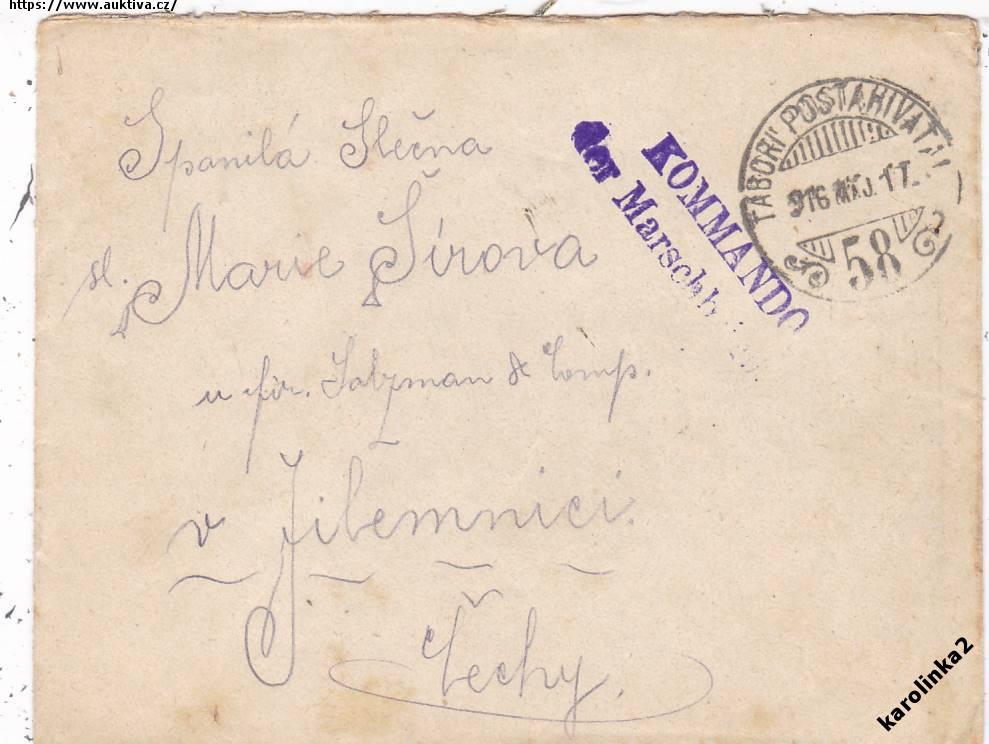 https://www.auktiva.cz/
Spanilá Slečna
sl. Marie Šírova
u fir. Salzman & Comp.
v Jilemnici.
Čechy.
KOMMANDO
der Marschb
TÁBORI POSTAHIVATAL
916 17.
58
karolinka2